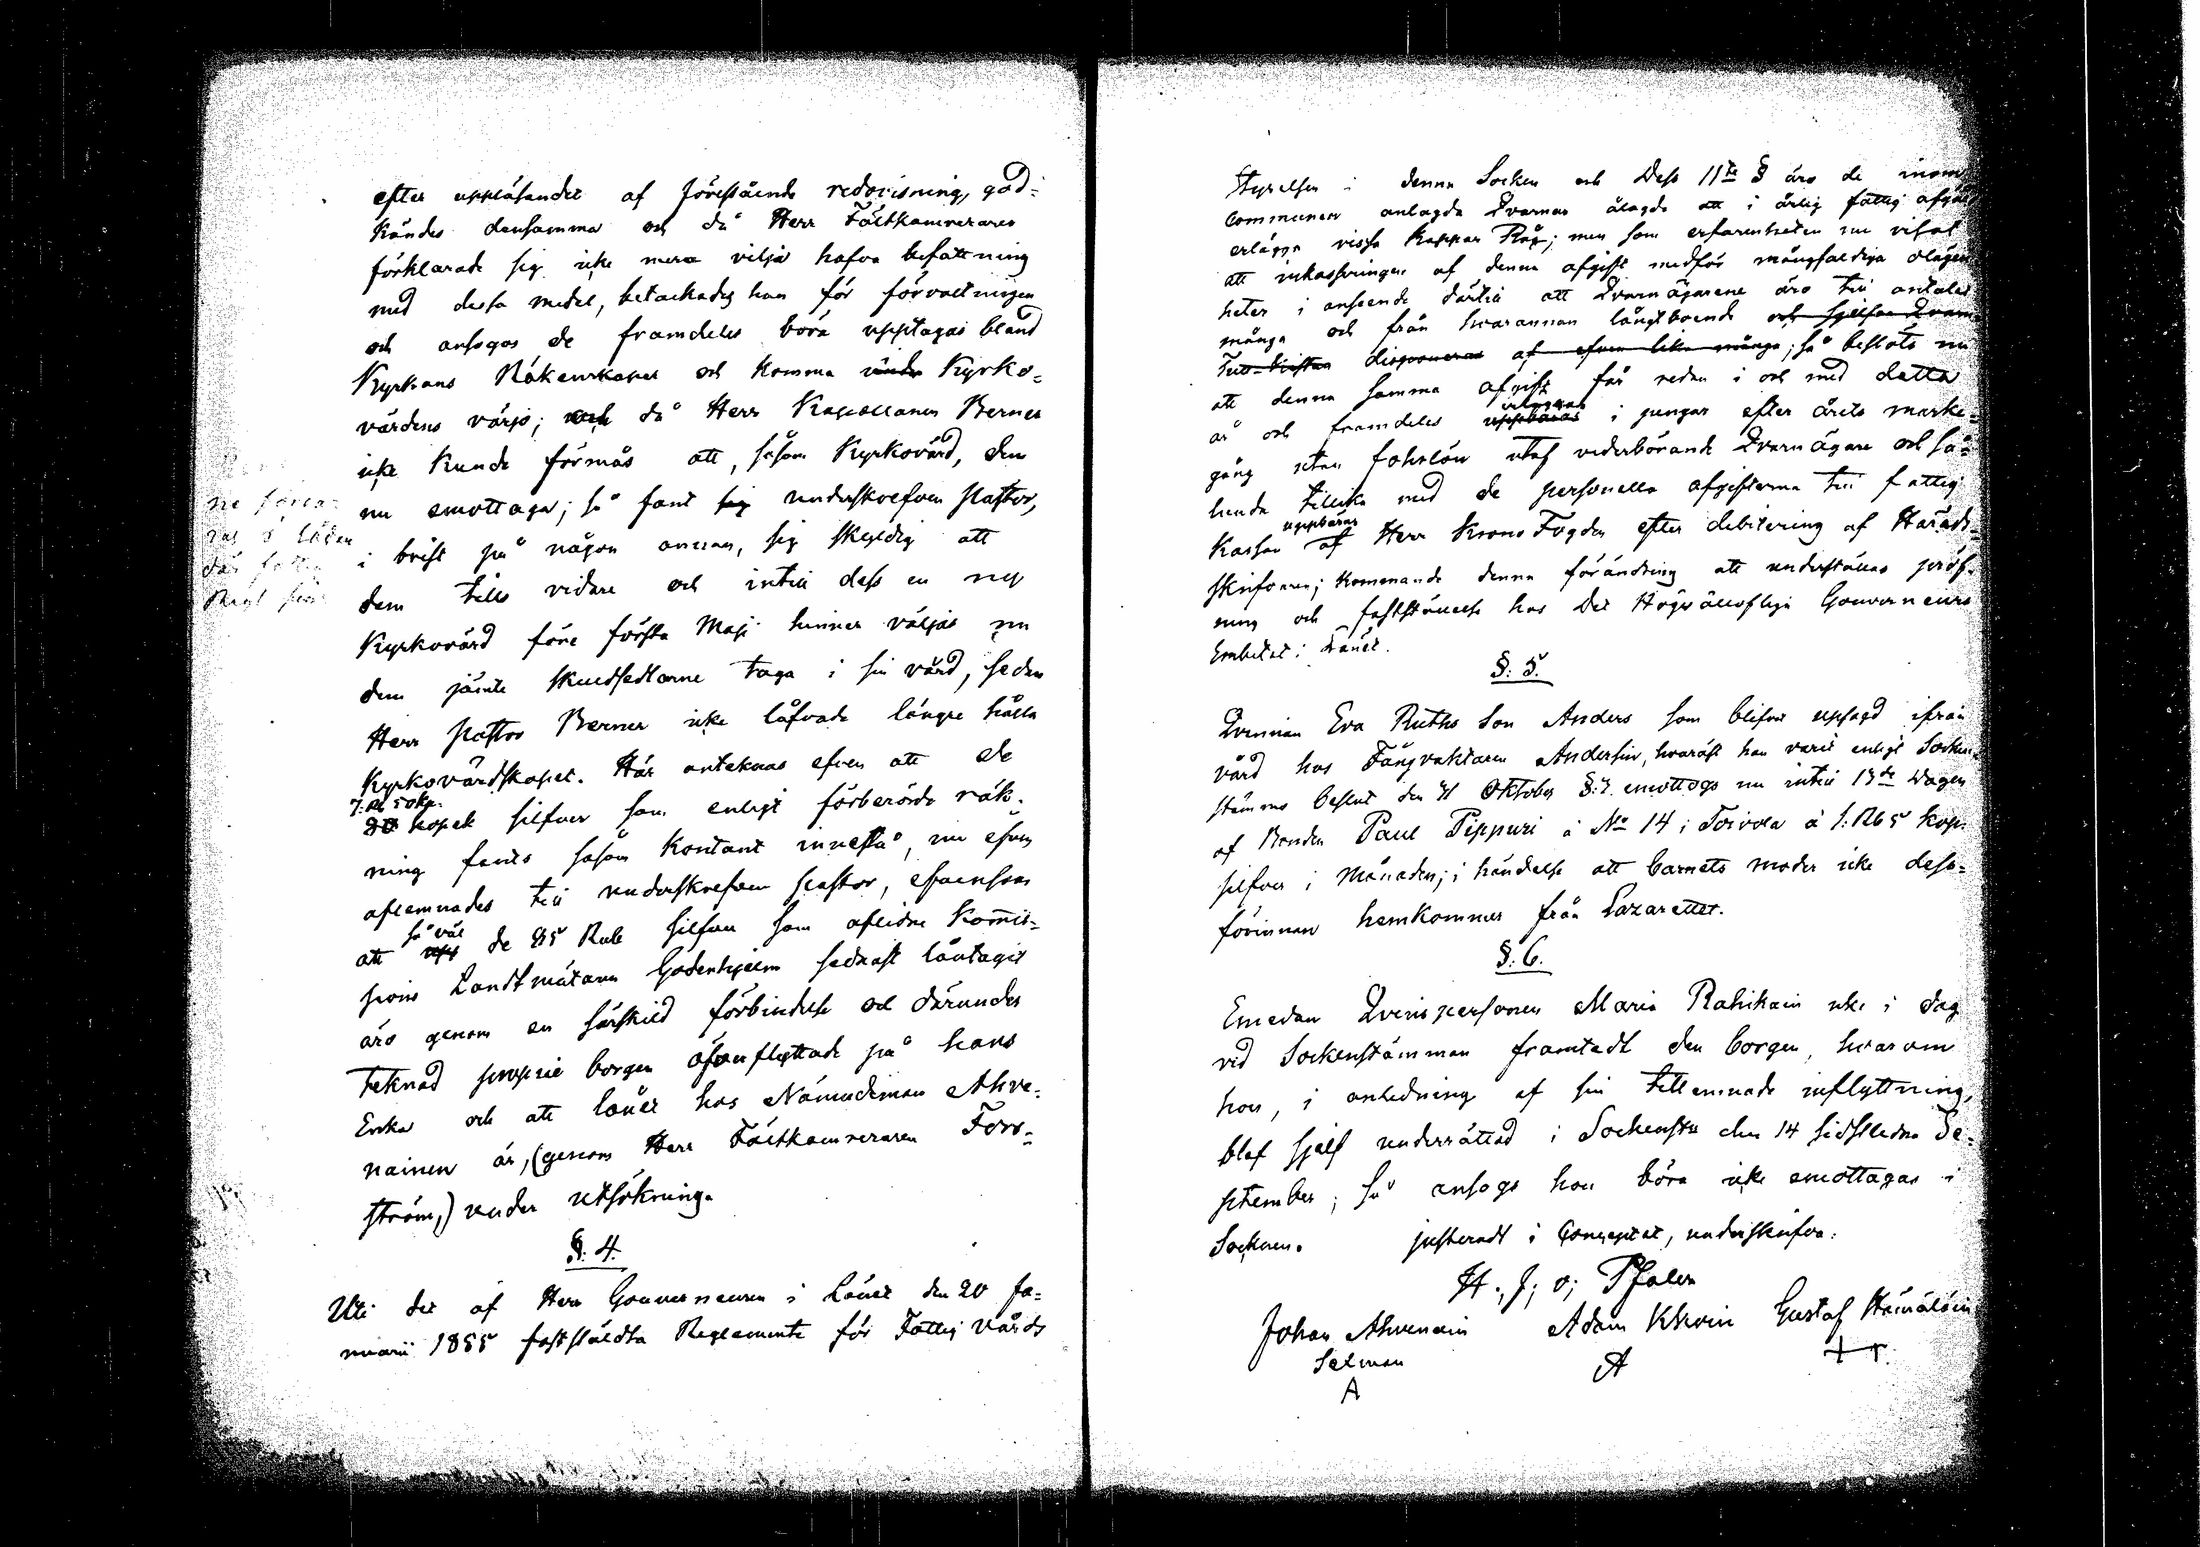 efter uppläsandet af förestående redovisning, god-
kändes densamma och då Herr Fältkamreraren
förklarade sig icke mera vilja hafva befattning
med dessa medel, betackades han för förvaltningen
och ansågos de framdeles böra upptagas bland
Kyrkans Räkenskaper och komma under Kyrko-
värdens värjo; och då Herr Kapellanen Berner
icke kunde förmås att, såsom Kyrkovärd, dem
nu emottaga; så fant sig underskrefven Pastor,
i brist på någon annan, sig skyldig att
dem tills vidare och intill dess en ny
Kyrkovärd före första Maji hinner väljas nu
dem jämte skuldsedlarne taga i sin vård, sedan
Herr Pastor Berner icke låfvade längre hålla
Kyrkovärdskapet. Här anteknas efven att de
7. R. 50 kp.
kopek silfver som enligt förberörde räk-
ning fants såsom kontant innestå, nu efven
aflemnades till underskrefven Pastor, efvensom
så väl
att de 85 Rub silfver som aflidne Kom̅is-
sions Landtmätaren Godenhjelm sednast låntagit
äro genom en särskild förbindelse och därunder
teknad proprie borgen öfverflyttade på hans
Enka och att lånet hos Nämndeman Ahve-
nainen är, (genom Herr Fältkamreraren Fors-
ström,) under utsökning.
§: 4.
Uti det af Herr Gouverneuren i Länet den 20 Ja-
nuarii 1855 fastställdta Reglemente för Fattig vårds
Styrelsen i denna Socken och Dess 11te § äro de inom
Communen anlagde Qvarnar ålagde att i årlig fattig afgält
erlägga vissa kappar Råg; men som erfarenheten nu visat
att inkassringen af denna afgift medför mångfaldiga olägen
heter i anseende därtill att Qvarnägarene äro till antalet
många och från hvarannan långtboende och sjelfva Qvarn
disponeras af efven lika många; så beslöts nu
att denna samma afgift får redan i och med detta
år och framdeles uppbäras i pengar efter årets marke-
gång utan foholön utaf vederbörande Qvarnägare och så-
lunda tillika med de personella afgifterna till fattig
uppbäras
Kassan af Herr Krono Fogden efter debitering af Härads-
skrifvaren; kommande denna förändring att underställas pröf-
ning och fastställelse hos Det Högvällofliga Gouverneurs
Embetet i Länet.
§: 5.
Qvinnan Eva Ruths Son Anders som blifvit uppsagd ifrån
vård hos Fångvaktaren Andersin, hvaräst han varit enligt Socken-
stämmo beslut den 21 Oktober §: 7. emottogs nu intill 13de Dagen
af Bonden Paul Pippuri å No 14 i Toivola à 1: R 65 kop.
silfver i Månaden; i händelse att barnets moder icke dess-
förinnan hemkommer från Lazarettet.
§: 6.
Emedan Qvinspersonen Maria Rahikain icke i dag
vid Sockenstämman framtedt den borgen, hvarom
hon, i anledning af sin tillemnade inflyttning,
blef sjelf underrättad i Sockenstu den 14 sidstledne Se-
ptember; så ansågs hon böra icke emottagas i
Socknen. justeradt i Conceptet, underskrifva:
H. J; v; Pfaler
Johan Ahvenain Adam Gustaf Hämäläin
Selman
A A